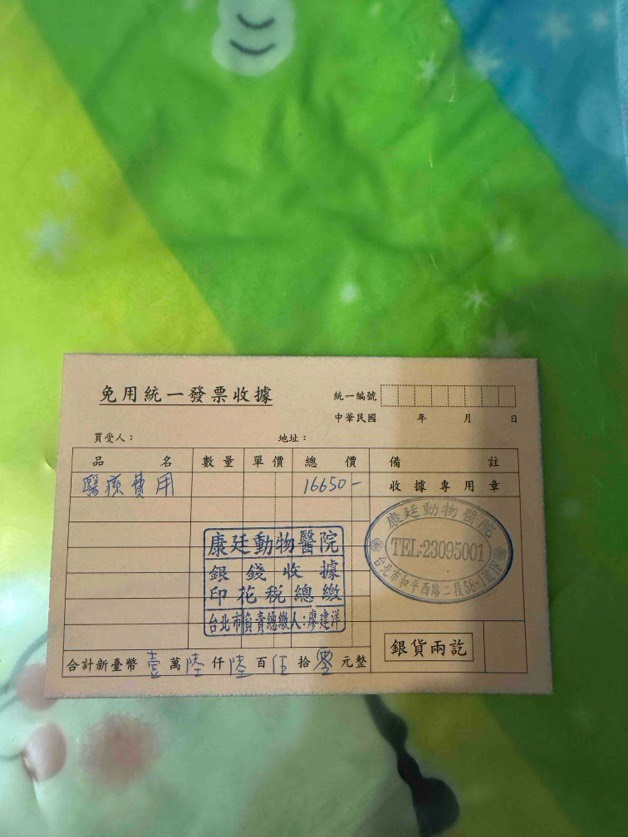 免用統一發票收據
統一編號
中華民國 年 月 日
買受人： 地址：
品名 數量 單價 總價 備註
醫療費用 16650- 收據專用章
康廷動物醫院
TEL:23095001
台北市和平西路二段58-1號
康廷動物醫院
銀錢收據
印花稅總繳
台北市負責總繳人:廖建洋
銀貨兩訖
合計新臺幣 壹 萬 陸 仟 陸 百 伍 拾 零 元整